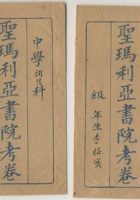 聖瑪利亞書院考卷
中學 科
聖瑪利亞書院考卷
級 年生李